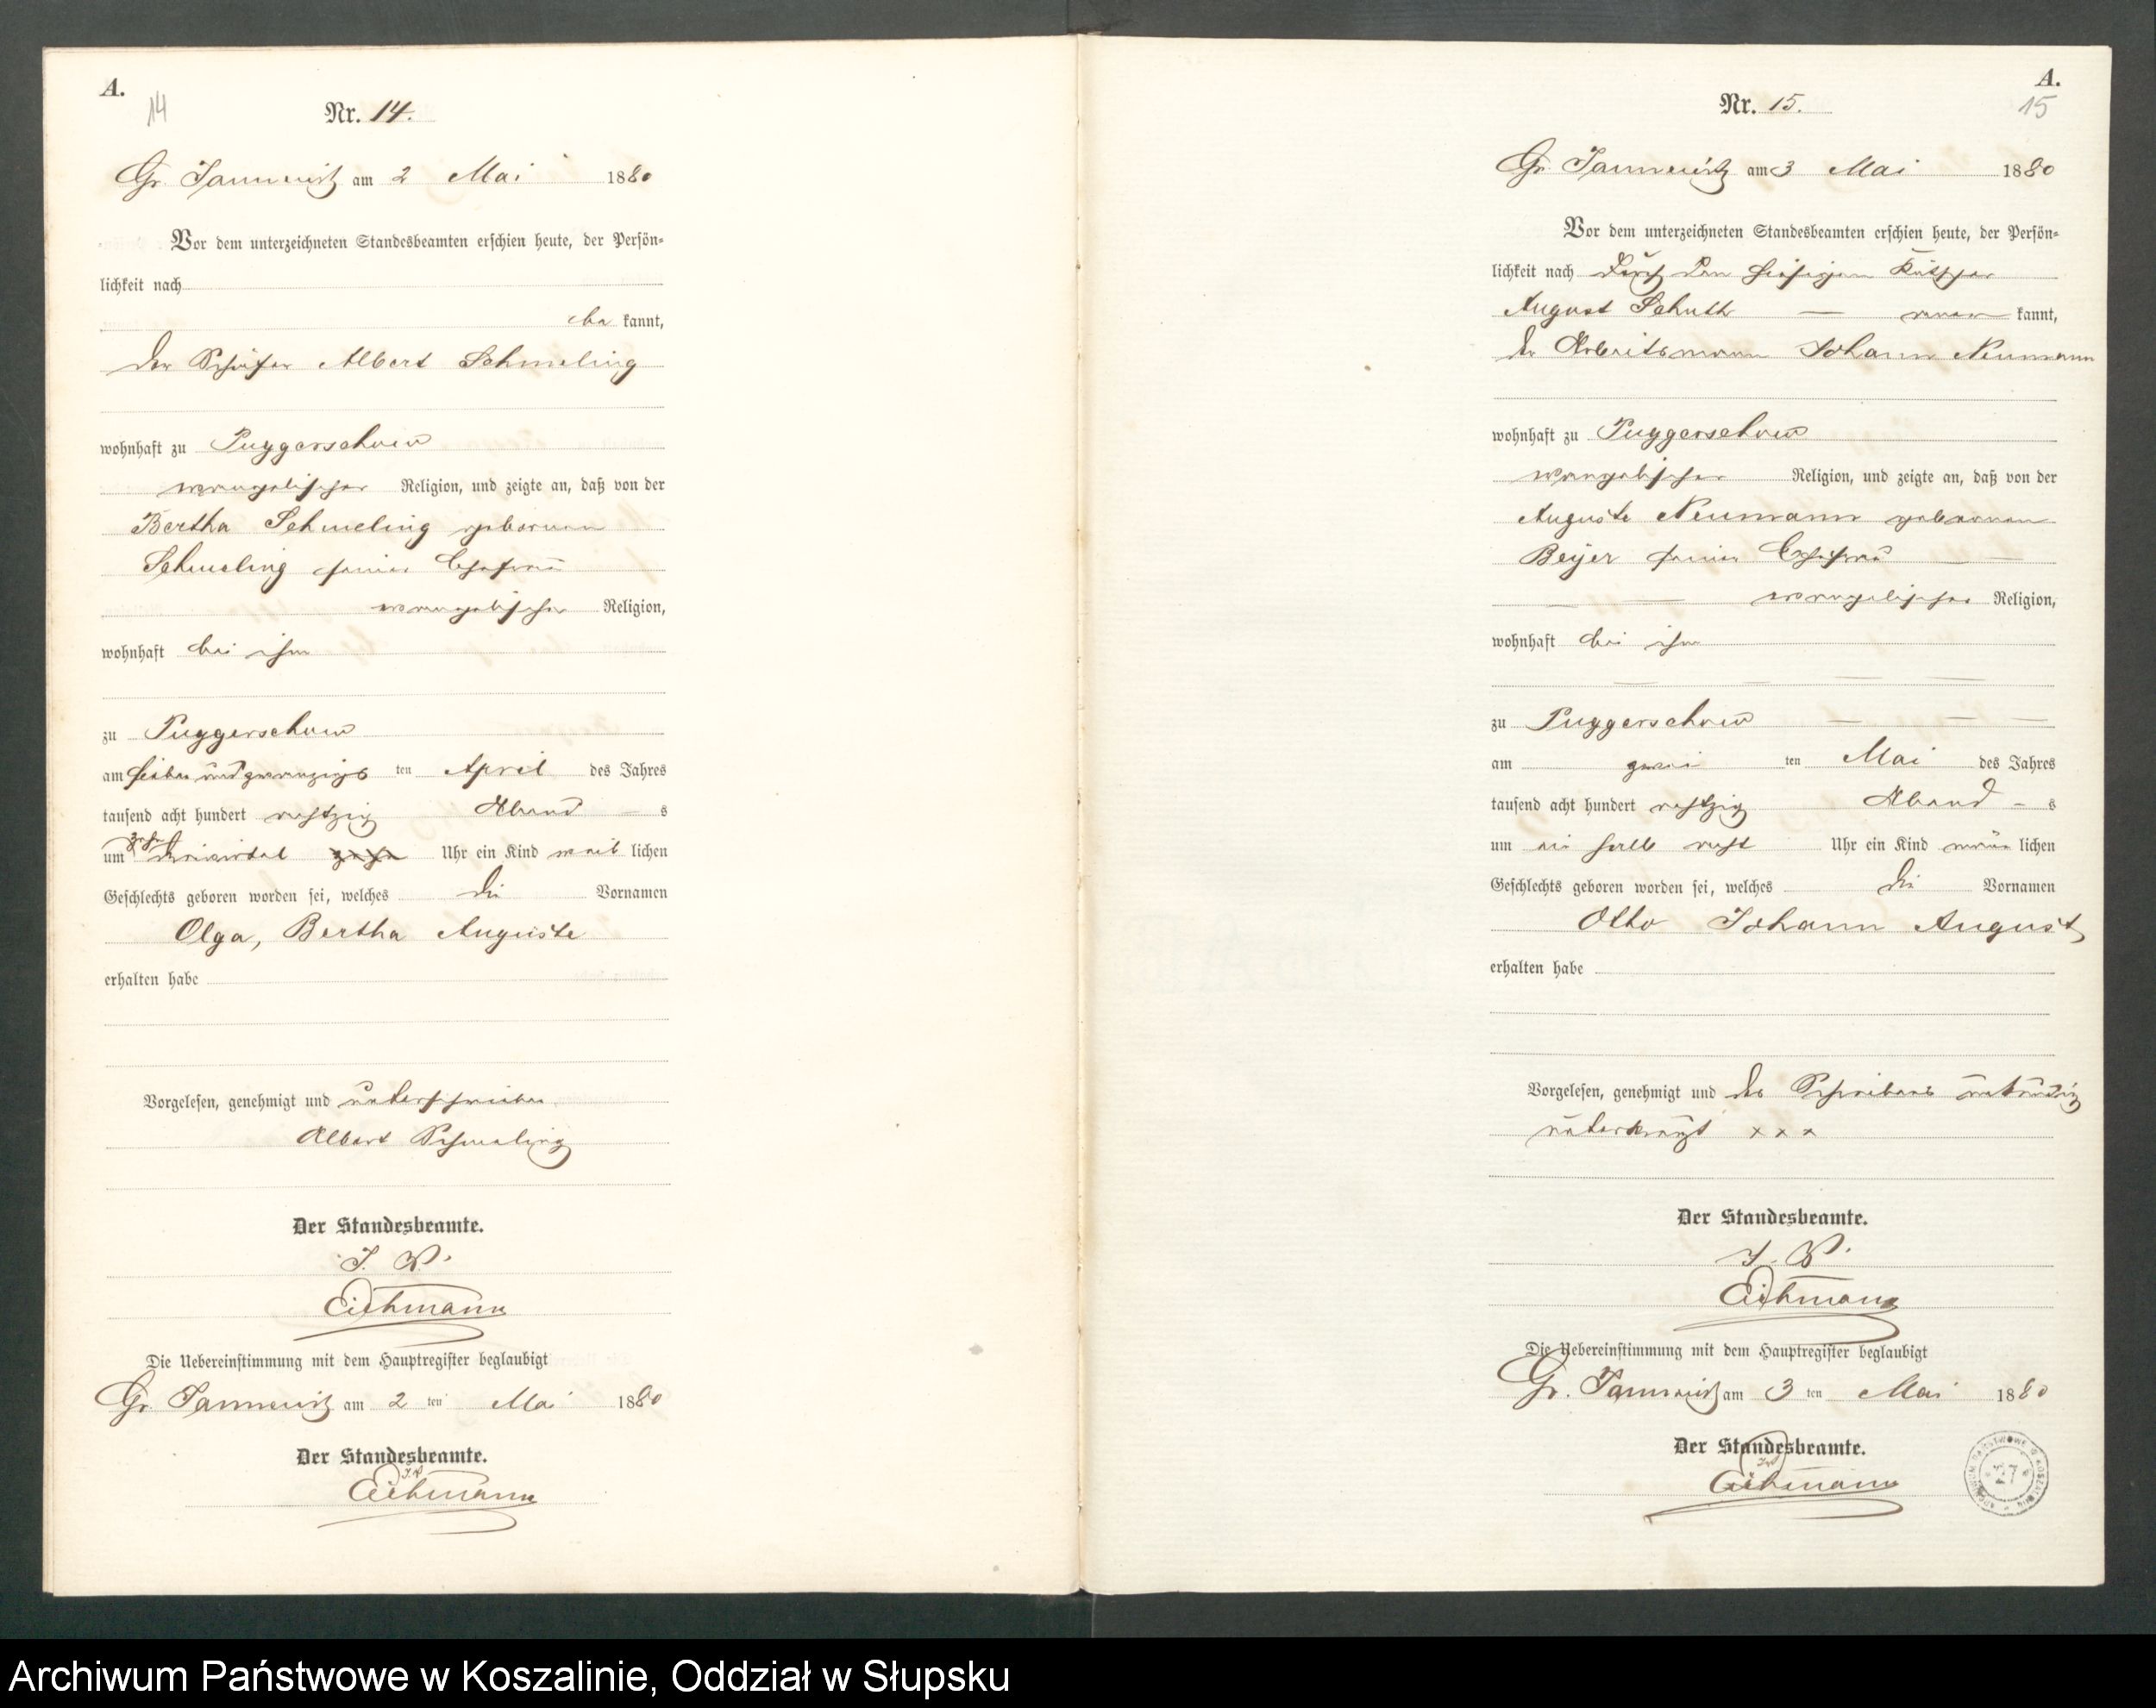 A.
14
Nr. 14.
Gr. Jannewitz am 2 Mai 1880
Vor dem unterzeichneten Standesbeamten erschien heute, der Persön-
lichkeit nach
be kannt,
der Schäfer Albert Schmeling
wohnhaft zu Puggerschow
evangelischer Religion, und zeigte an, daß von der
Bertha Schmeling geborenen
Schmeling seiner Ehefrau
evangelischer Religion,
wohnhaft bei ihm
zu Puggerschow
am sieben und zwanzigs ten April des Jahres
tausend acht hundert achtzig Abend s
um dreiviertel Uhr ein Kind weib lichen
Geschlechts geboren worden sei, welches die Vornamen
Olga, Bertha Auguste
erhalten habe
Vorgelesen, genehmigt und unterschrieben
Albert Schmeling
Der Standesbeamte.
J. V.
Eichmann
Die Uebereinstimmung mit dem Hauptregister beglaubigt
Gr. Jannewitz am 2 ten Mai 1880
Der Standesbeamte.
J. V.
Eichmann
A.
15
Nr. 15.
Gr. Jannewitz am 3 Mai 1880
Vor dem unterzeichneten Standesbeamten erschien heute, der Persön-
lichkeit nach durch den hiesigen
August Schuth — aner kannt,
der Arbeitsmann Johann Neumann
wohnhaft zu Puggerschow
evangelischer Religion, und zeigte an, daß von der
Auguste Neumann geborenen
Beyer seiner Ehefrau
evangelischer Religion,
wohnhaft bei ihm
zu Puggerschow
am zwei ten Mai des Jahres
tausend acht hundert achtzig Abend s
um ein halb acht Uhr ein Kind männ lichen
Geschlechts geboren worden sei, welches die Vornamen
Otto Johann August
erhalten habe
Vorgelesen, genehmigt und des Schreibens unkundig
unterkreuzt x x x
Der Standesbeamte.
J. V.
Eichmann
Die Uebereinstimmung mit dem Hauptregister beglaubigt
Gr. Jannewitz am 3 ten Mai 1880
Der Standesbeamte.
J. V.
Eichmann
27
Archiwum Państwowe w Koszalinie, Oddział w Słupsku